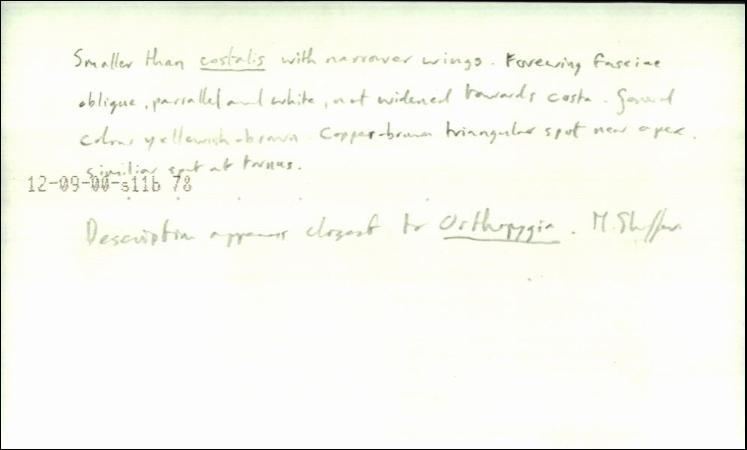 Smaller than costalis with narrower wings. Forewing fasciae
oblique, parrallel and white, not widened towards costa. General
colour yellowish-brown. Copper-brown triangular spot near apex.
similiar spot at tornus.
12-09-00-s11b 78
Description appears closest to Orthopygia. M. Shaffer